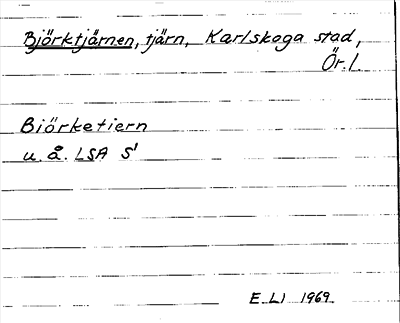 Björktjärnen, tjärn, Karlskoga stad,
Ör. l.
Biörketiern
u. å. LSA S1
E. LI 1969.